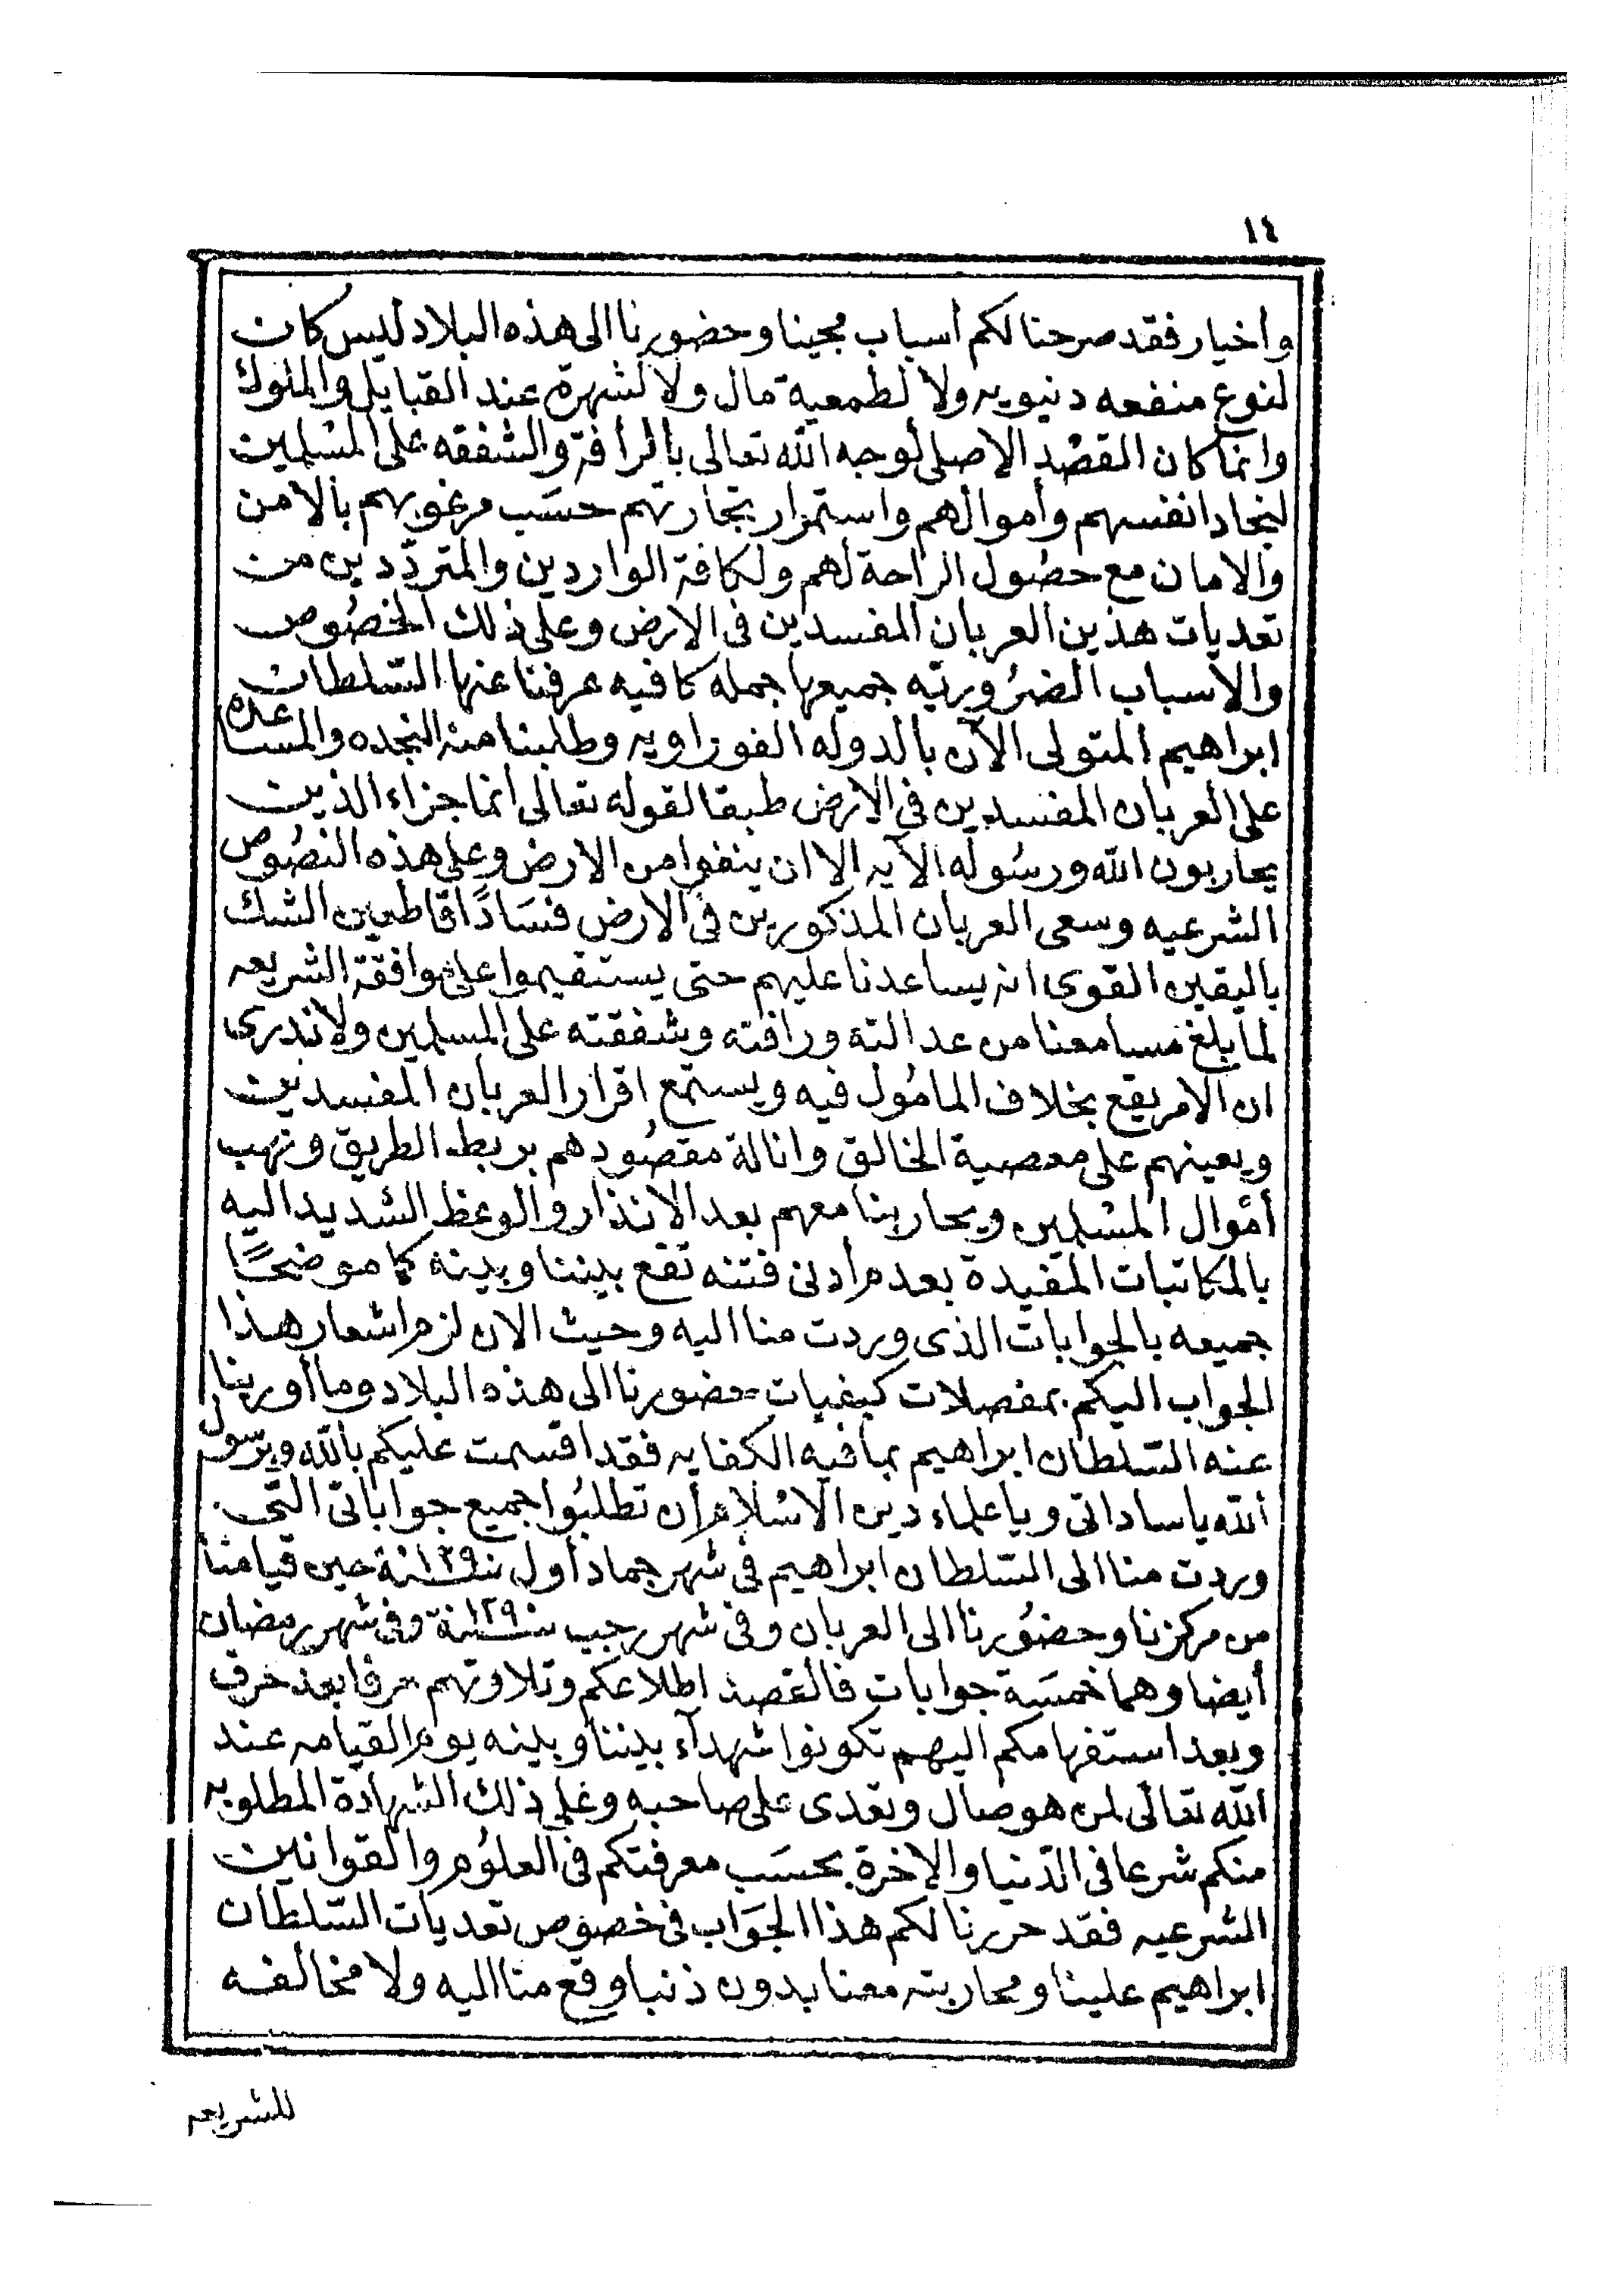 ١٤
وأخيار فقد صرحنا لكم أسباب مجينا وحضورنا الى هذه البلاد ليس كان
لنوع منفعه دنيويه ولا لطمعية مال ولا لشهرة عند القبايل والملوك
وانما كان القصد الاصلى لوجه الله تعالى بالرأفة والشفقه على المسلمين
لنجاد انفسهم وأموالهم واستمرار تجارتهم حسَب مرغوبهم بالامن
والامان مع حصُول الراحة لهم ولكافة الواردين والمتردّدين من
تعديات هذين العربان المفسدين فى الارض وعلى ذلك الخصُوص
والأسباب الضرُوريّه جميعها جمله كافيه عرفنا عنها السّلطان
ابراهيم المتولى الآن بالدوله الفوراويه وطلبنا منه النجده والمساعده
على العربان المفسدين فى الارض طبقا لقوله تعالى انما جزاء الذين
يحاربون الله ورسُوله الآيه الا ان ينفوا من الارض وعلى هذه النصُوص
الشرعيه وسعى العربان المذكورين فى الارض فسَادًا قاطعين الشك
باليقين القوى انه يساعدنا عليهم حتى يستقيموا على موافقة الشريعه
لما بلغ مسامعنا من عدالته ورافته وشفقته على المسلمين ولا ندرى
ان الامر يقع بخلاف المامُول فيه ويستمع اقرار العربان المفسدين
ويعينهم على معصية الخالق وانالة مقصُودهم بربط الطريق ونهب
أمُوال المسْلمين ويحاربنا معهم بعد الانذار والوعظ الشديد اليه
بالمكاتبات المفيدة بعدم أدنى فتنه تقع بيننا وبينه كما موضحًا
جميعه بالجوابات الذى وردت منا اليه وحيث الان لزم اشعار هذا
الجواب اليكم بمفصلات كيفيات حضورنا الى هذه البلاد وما أورينا
عنه السّلطان ابراهيم بما فيه الكفايه فقد اقسمت عليكم بالله وبرسول
الله يا ساداتى ويا علماء دين الاسْلام أن تطلبُوا جميع جواباتى التى
وردت منا الى السّلطان ابراهيم فى شهر جماد أول سنة ١٢٩٠ حين قيامنا
من مركزنا وحضُورنا الى العربان وفى شهر رجب سنة ١٢٩٠ وفى شهر رمضان
أيضا وهما خمسَة جوابات فالقصد اطلاعكم وتلاوتهم حرفا بعد حرف
وبعد استفهامكم اليهم تكونوا شهدآء بيننا وبينه يوم القيامه عند
الله تعالى لمن هو صال وتعدى على صاحبه وعلى ذلك الشهادة المطلوبه
منكم شرعا فى الدّنيا والاخرة بحسَب معرفتكم فى العلوُم والقوانين
الشرعيه فقد حررنا لكم هذا الجَوَاب فى خصُوص تعديات السّلطان
ابراهيم علينا ومحاربته معنا بدون ذنبا وقع منا اليه ولا مخالفه
للشريعه